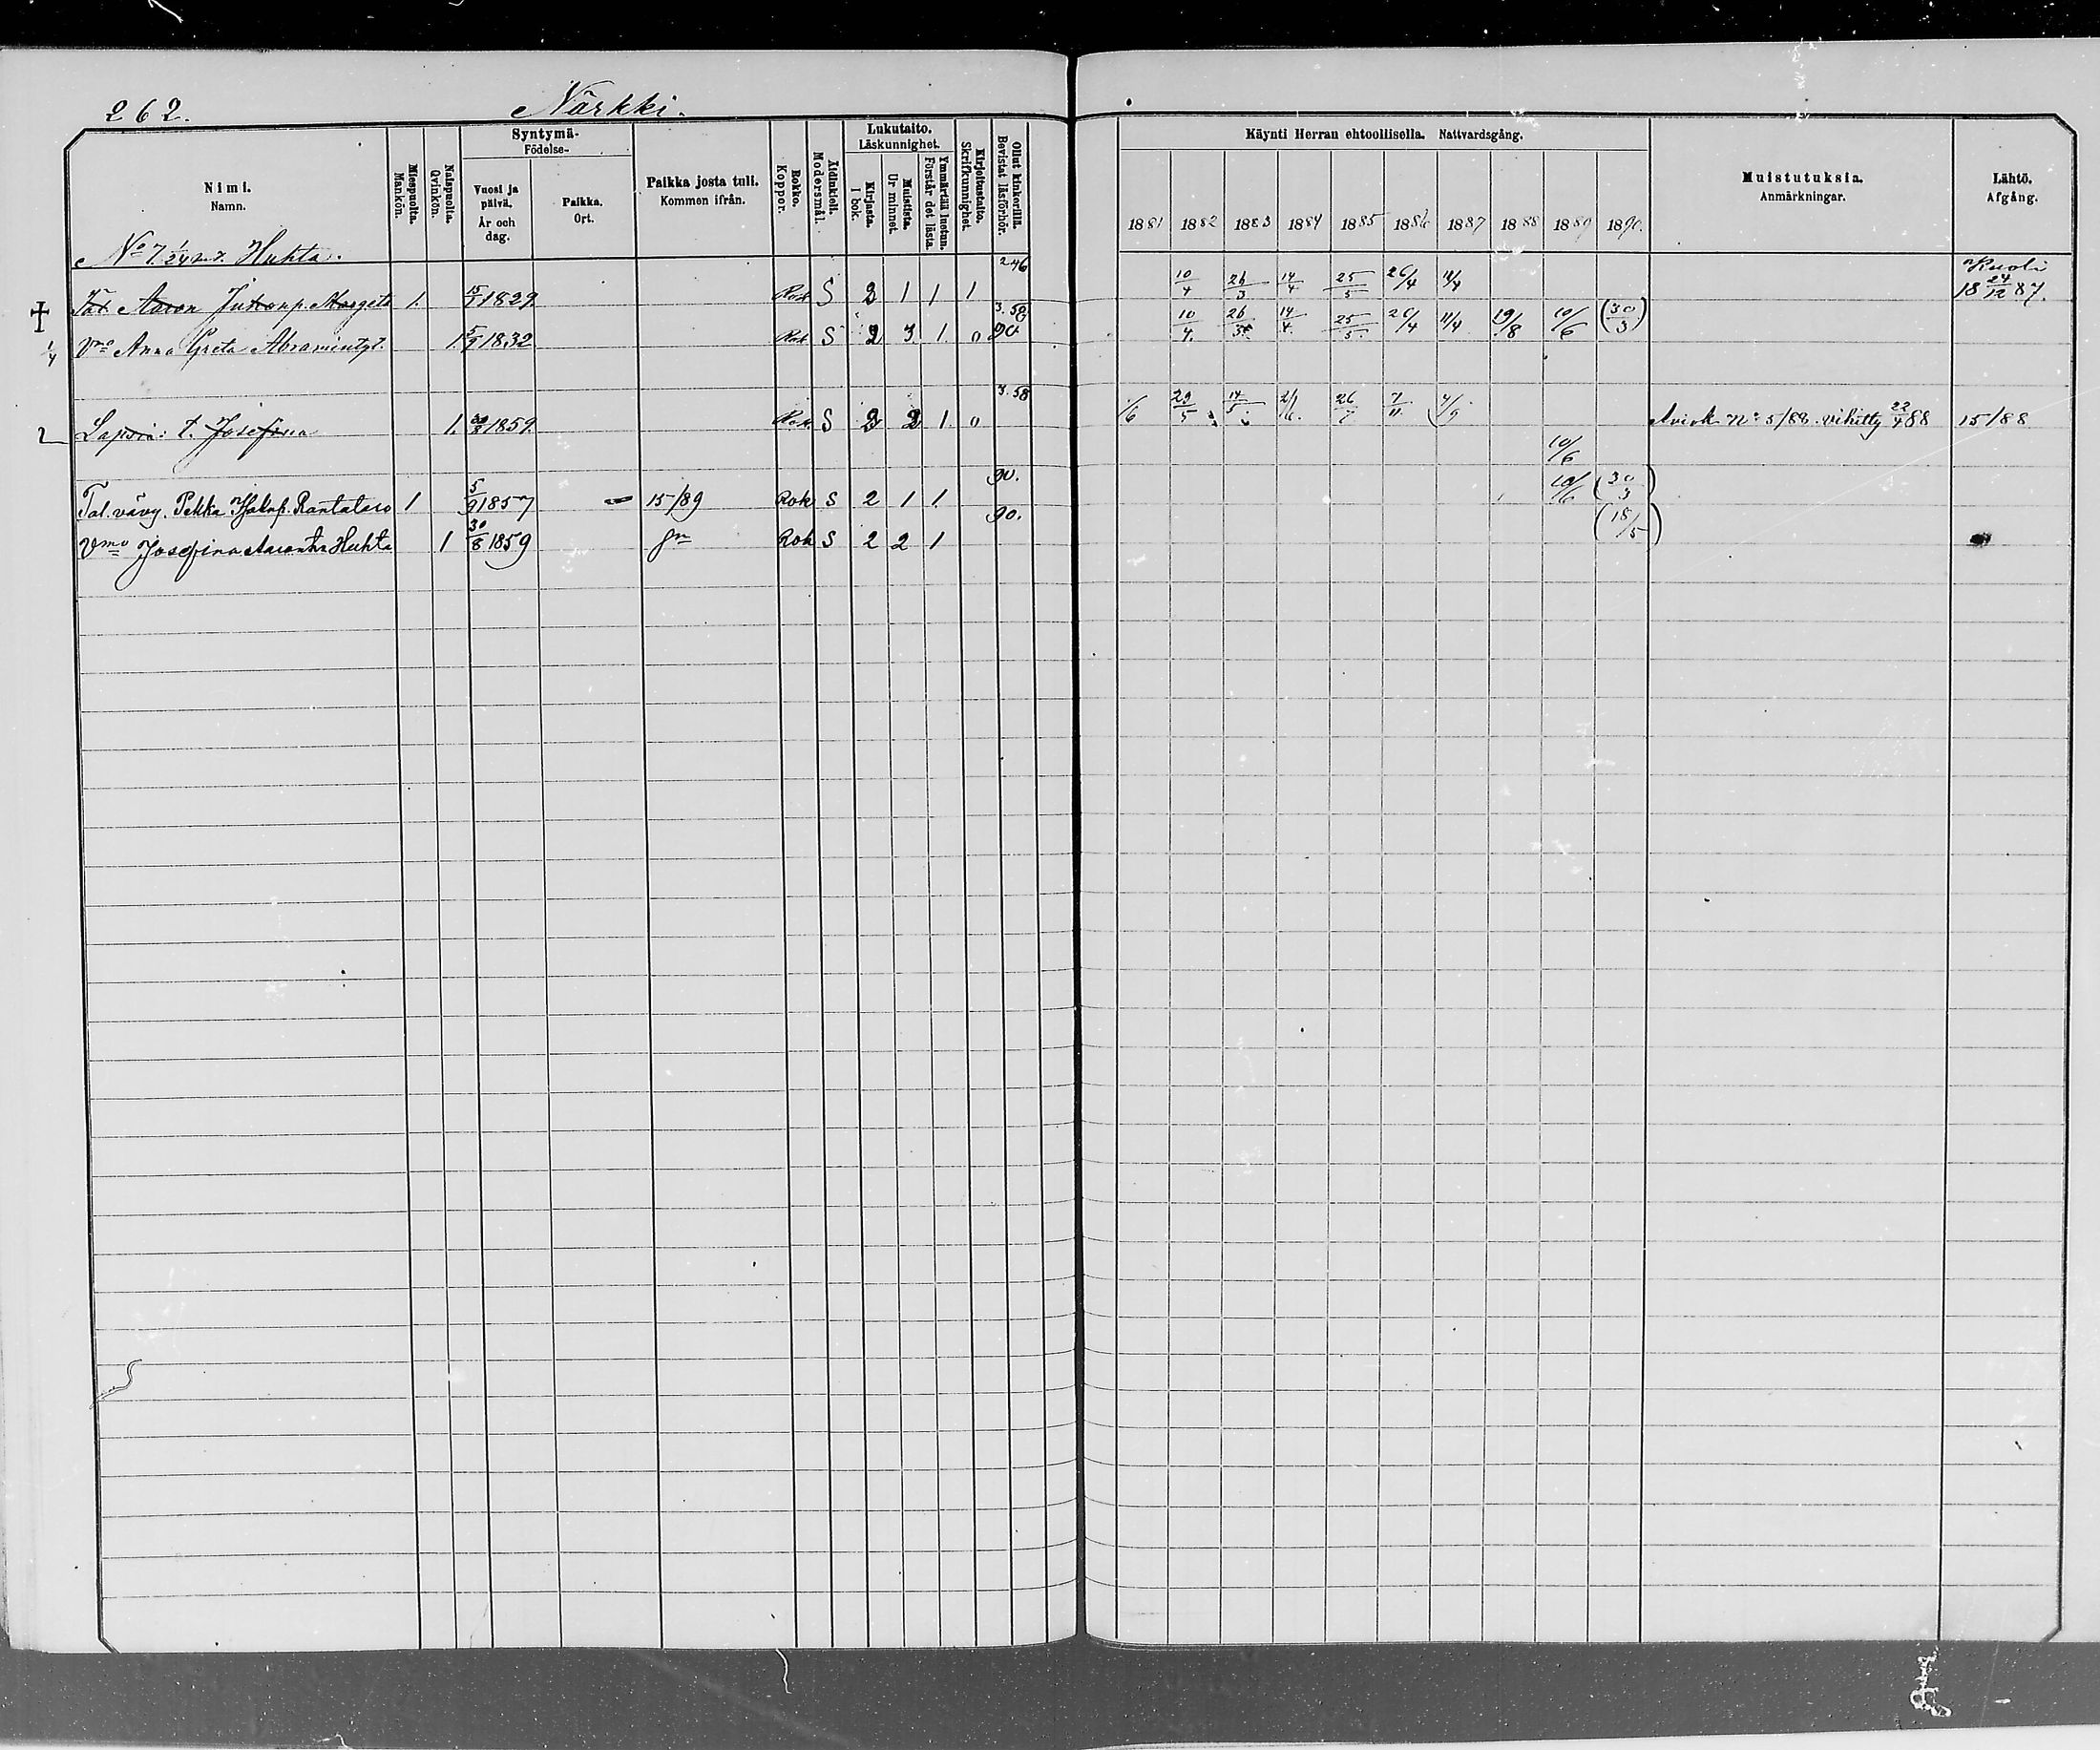 262. Närkki.
Nimi. Namn.
Miespuolta. Mankön.
Naispuolta. Qvinkön.
Syntymä- Födelse-
Vuosi ja päivä. År och dag.
Paikka. Ort.
Paikka josta tuli. Kommen ifrån.
Rokko. Koppor.
Äidinkieli. Modersmål.
Lukutaito. Läskunnighet.
Kirjasta. I bok.
Muistista. Ur minnet.
Ymmärtää luetun. Förstår det lästa.
Kirjoitustaito. Skrifkunnighet.
Ollut kinkerillä. Bevistat läsförhör.
Käynti Herran ehtoollisella. Nattvardsgång.
1881 1882 1883 1884 1885 1886 1887 1888 1889 1890.
Muistutuksia. Anmärkningar.
Lähtö. Afgång.
No 7. 1/24 Huhta.
Aaron 1. 15/1 1829 Rok S 2 1 1 1 10/4 26/3 14/4 25/5 26/4 11/4 Kuoli 18 24/12 87.
1/4 Vmo Anna Greta Abramintyt. 1. 1832 Rok S 2 3. 1 0 90 10/4. 26/3 14/4. 25/5. 26/4 11/4 19/8 10/6 (30/3)
2 Lapsia: t. Josefina 1. 30/8 1859. Rok S 2 2 1. 0 3.58 29/5 14/5 26/7 7/11 Aviok. No 5/88. vihitty 22/4 88 15/88
10/6
Tal. vävy. Pekka Rantatalo 1 5/9 1857 15/89 Rok S 2 1 1. 90. 10/6 (30/3)
Vmo Josefina Aarontr Huhta 1 30/8 1859 Rok S 2 2 1 90. (18/5)